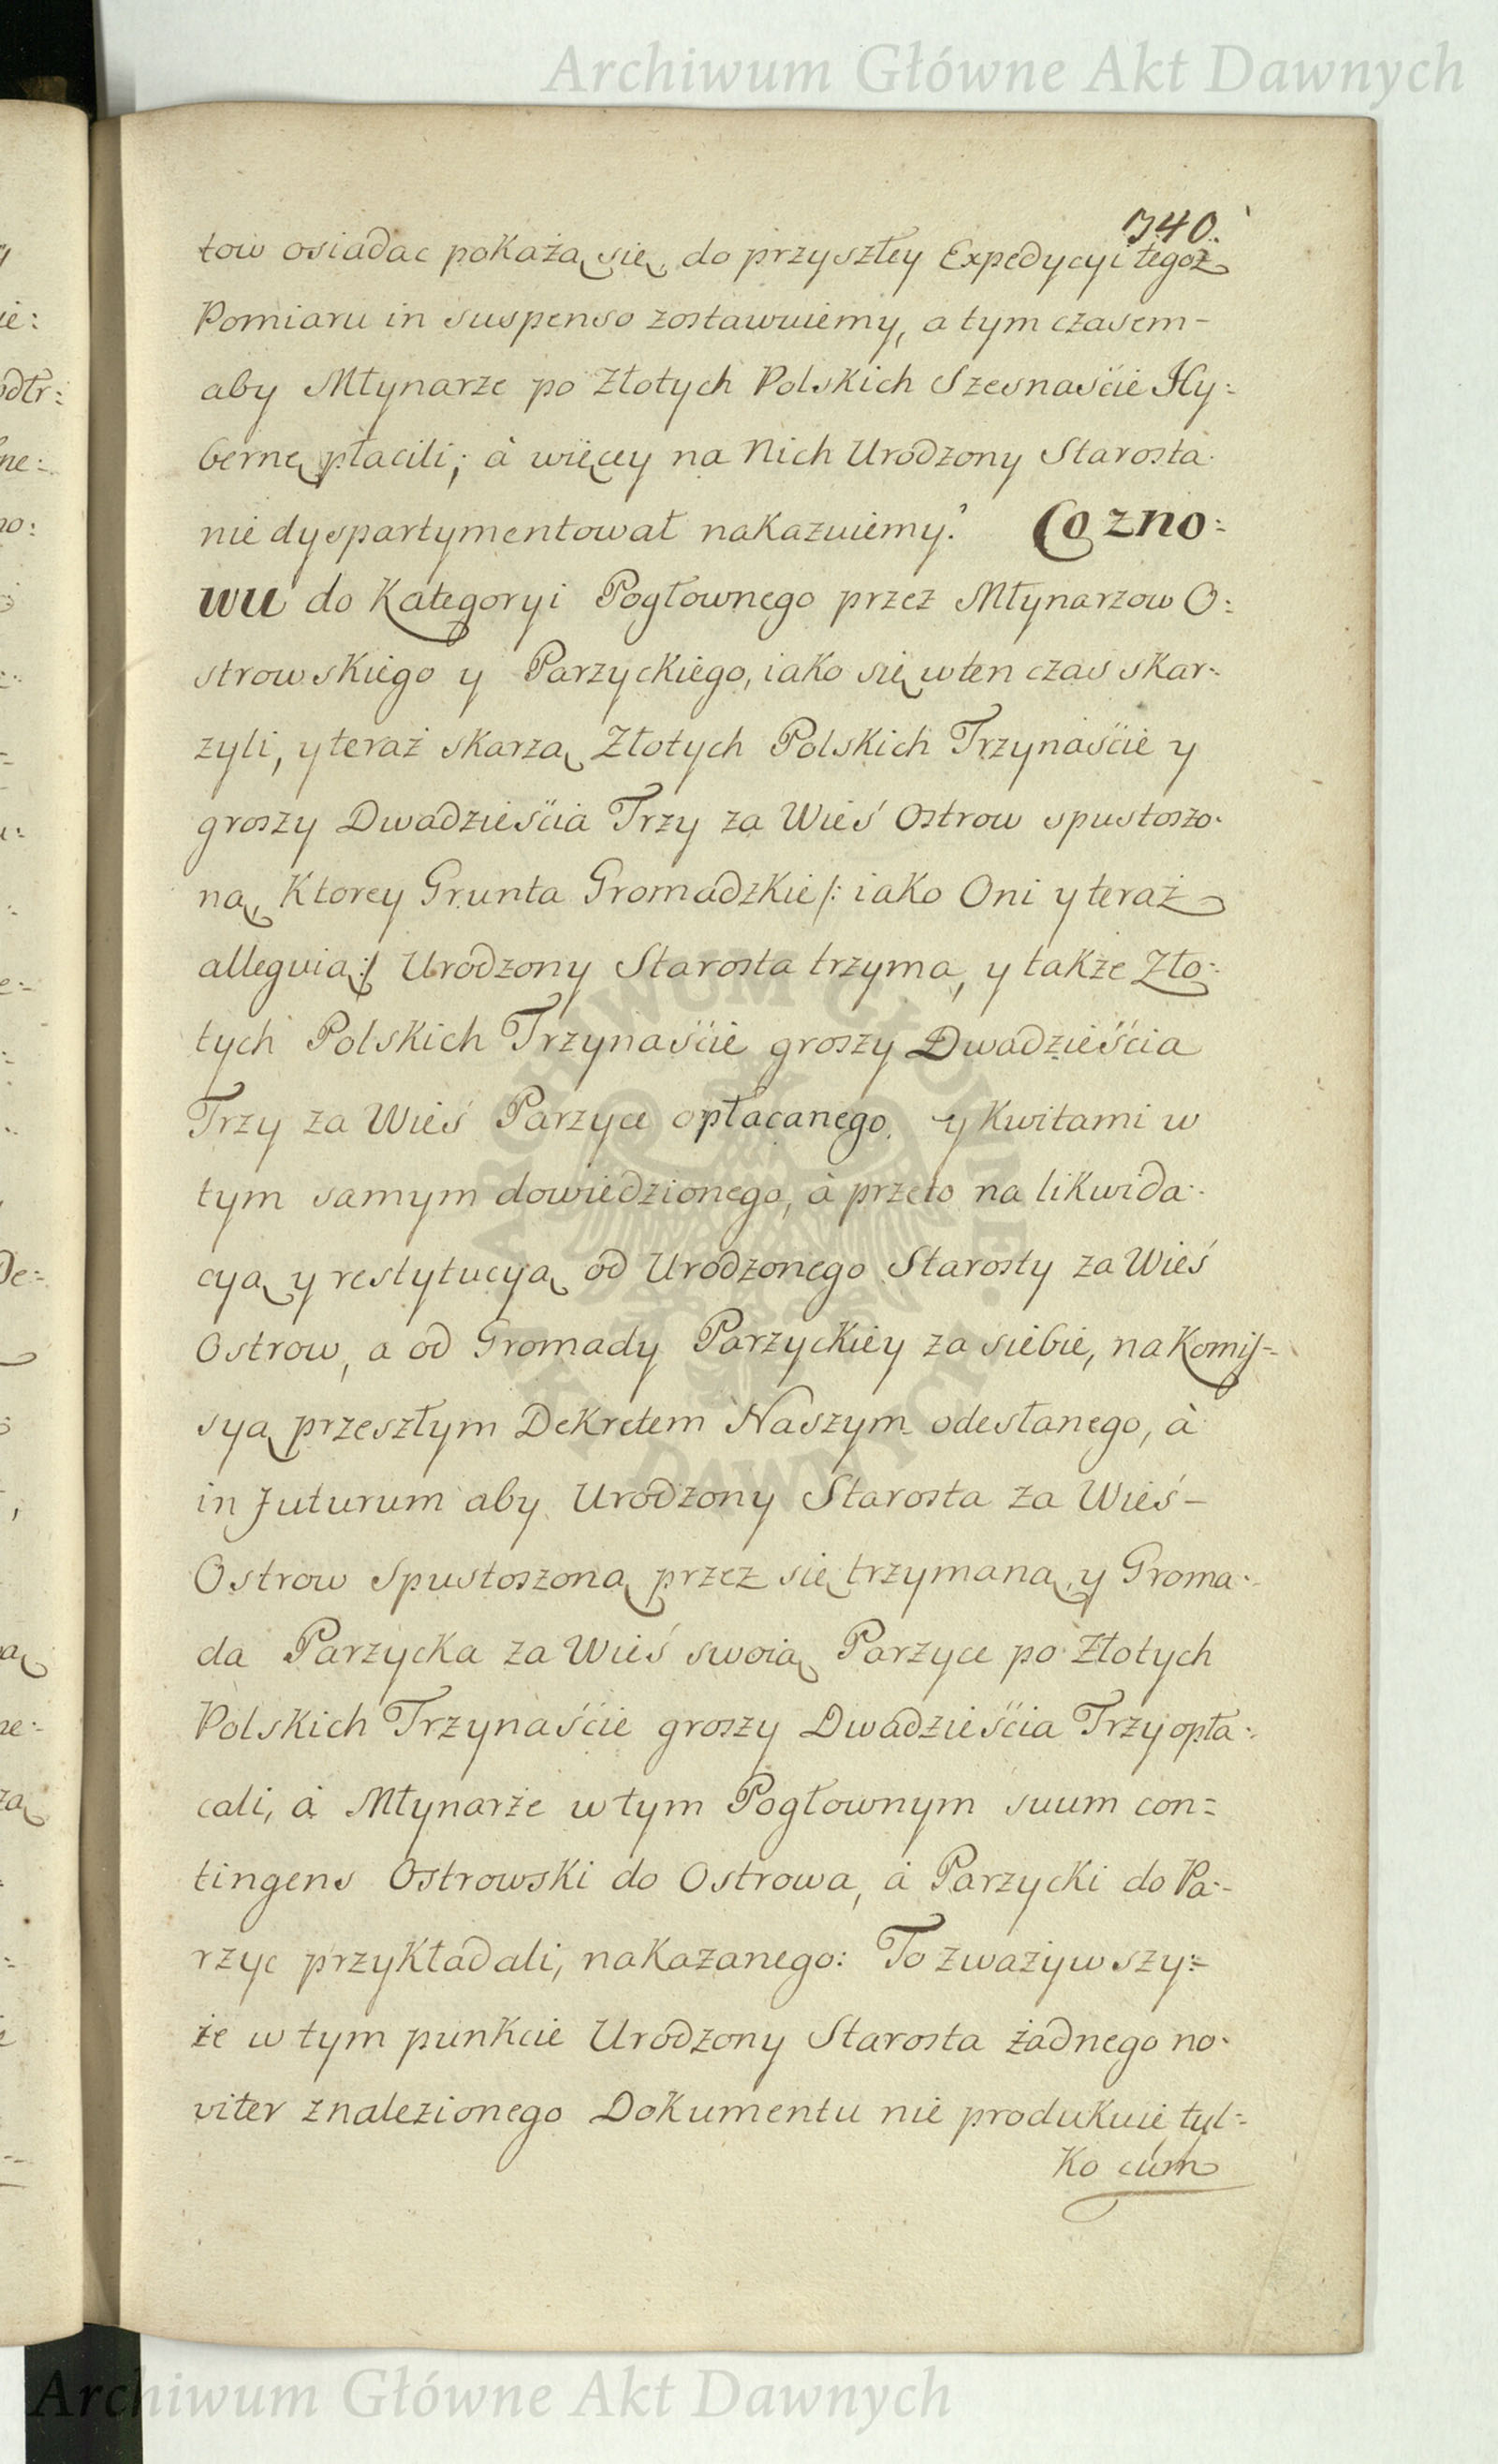 Archiwum Główne Akt Dawnych
340.
tow osiadac pokażą się, do przyszłey Expedycyi tegoż
Pomiaru in suspenso zostawuiemy, a tym czasem-
aby Młynarze po Złotych Polskich Szesnaście Hy:
bernę płacili; à więcey na Nich Urodzony Starosta
nie dyspartymentował nakazuiemy. Co zno:
wu do Kategoryi Pogłownego przez Młynarzow O:
strowskiego y Parzyckiego, iako się wten czas skar:
zyli, y teraż skarzą Złotych Polskich Trzynaście y
groszy Dwadzieścia Trzy za Wieś Ostrow spustoszo:
ną, Ktorey Grunta Gromadzkie /: iako Oni y teraż
alleguią :/ Urodzony Starosta trzyma, y także Zło:
tych Polskich Trzynaście groszy Dwadzieścia
Trzy za Wieś Parzyce opłacanego, y Kwitami w
tym samym dowiedzionego, à przeto na likwida:
cyą y restytucyą od Urodzonego Starosty za Wieś
Ostrow, a od Gromady Parzyckiey za siebie, na Komis=
syą przeszłym Dekretem Naszym odesłanego, à
in futurum aby Urodzony Starosta za Wieś-
Ostrow Spustoszoną przez się trzymaną, y Groma:
da Parzycka za Wieś swoią Parzyce po Złotych
Polskich Trzynaście groszy Dwadzieścia Trzy opła:
cali, à Młynarże w tym Pogłownym suum con=
tingens Ostrowski do Ostrowa, à Parzycki do Pa:
rzyc przykładali, nakazanego: To zważywszy:
że w tym punkcie Urodzony Starosta żadnego no:
viter znalezionego Dokumentu nie produkuie tyl:
ko cum
Archiwum Główne Akt Dawnych